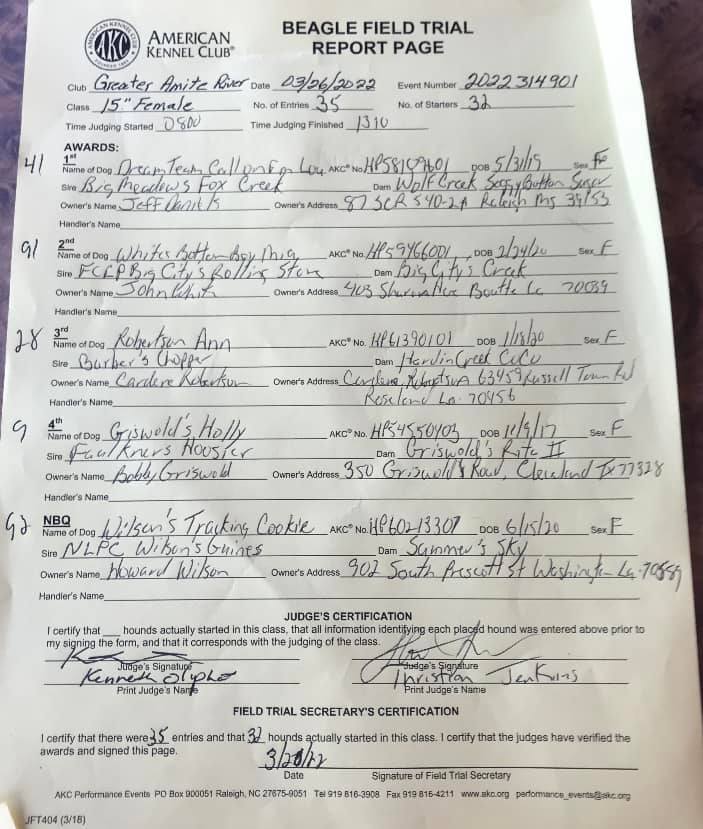 AMERICAN
KENNEL CLUB®
AKC
BEAGLE FIELD TRIAL
REPORT PAGE
Club Greater Amite River Date 03/26/2022 Event Number 2022314901
Class 15" Female No. of Entries 35 No. of Starters 32
Time Judging Started 0800 Time Judging Finished 1310
AWARDS:
41 1st
Name of Dog Dream Team Call on Em Lou AKC® No. HP58109601 DOB 5/31/19 Sex
Sire Big Meadows Fox Creek Dam Wolf Creek Button
Owner's Name Jeff Owner's Address 87 SCR 540-2A Raleigh Ms 39153
Handler's Name
91 2nd
Name of Dog Whites Bottom Boy Mia AKC® No. HP59466001 DOB 2/24/20 Sex F
Sire FCGP Big City's Rolling Stone Dam Big City's Creek
Owner's Name John White Owner's Address 403 Boutte La 70039
Handler's Name
28 3rd
Name of Dog Robertson Ann AKC® No. HP61390101 DOB 1/18/20 Sex F
Sire Barber's Chopper Dam Hardin Creek CoCo
Owner's Name Cardene Robertson Owner's Address Robertson 63459 Russell Town Rd
Handler's Name Roseland La. 70456
9 4th
Name of Dog Griswold's Holly AKC® No. HP54550403 DOB 11/9/17 Sex F
Sire Faulkners Hoosier Dam Griswold's Rita II
Owner's Name Bobby Griswold Owner's Address 350 Griswold's Road, Cleveland Tx 77328
Handler's Name
92 NBQ
Name of Dog Wilson's Tracking Cookie AKC® No. HP60213307 DOB 6/15/20 Sex F
Sire NLPC Wilson's Guines Dam Summer's Sky
Owner's Name Howard Wilson Owner's Address 902 South Prescott St Washington La. 70589
Handler's Name
JUDGE'S CERTIFICATION
I certify that ___ hounds actually started in this class, that all information identifying each placed hound was entered above prior to
my signing the form, and that it corresponds with the judging of the class.
Judge's Signature Judge's Signature
Kenneth Olipho Christian Jenkins
Print Judge's Name Print Judge's Name
FIELD TRIAL SECRETARY'S CERTIFICATION
I certify that there were 35 entries and that 32 hounds actually started in this class. I certify that the judges have verified the
awards and signed this page.
3/26/22
Date Signature of Field Trial Secretary
AKC Performance Events PO Box 900051 Raleigh, NC 27675-9051 Tel 919 816-3908 Fax 919 816-4211 www.akc.org performance_events@akc.org
JFT404 (3/18)